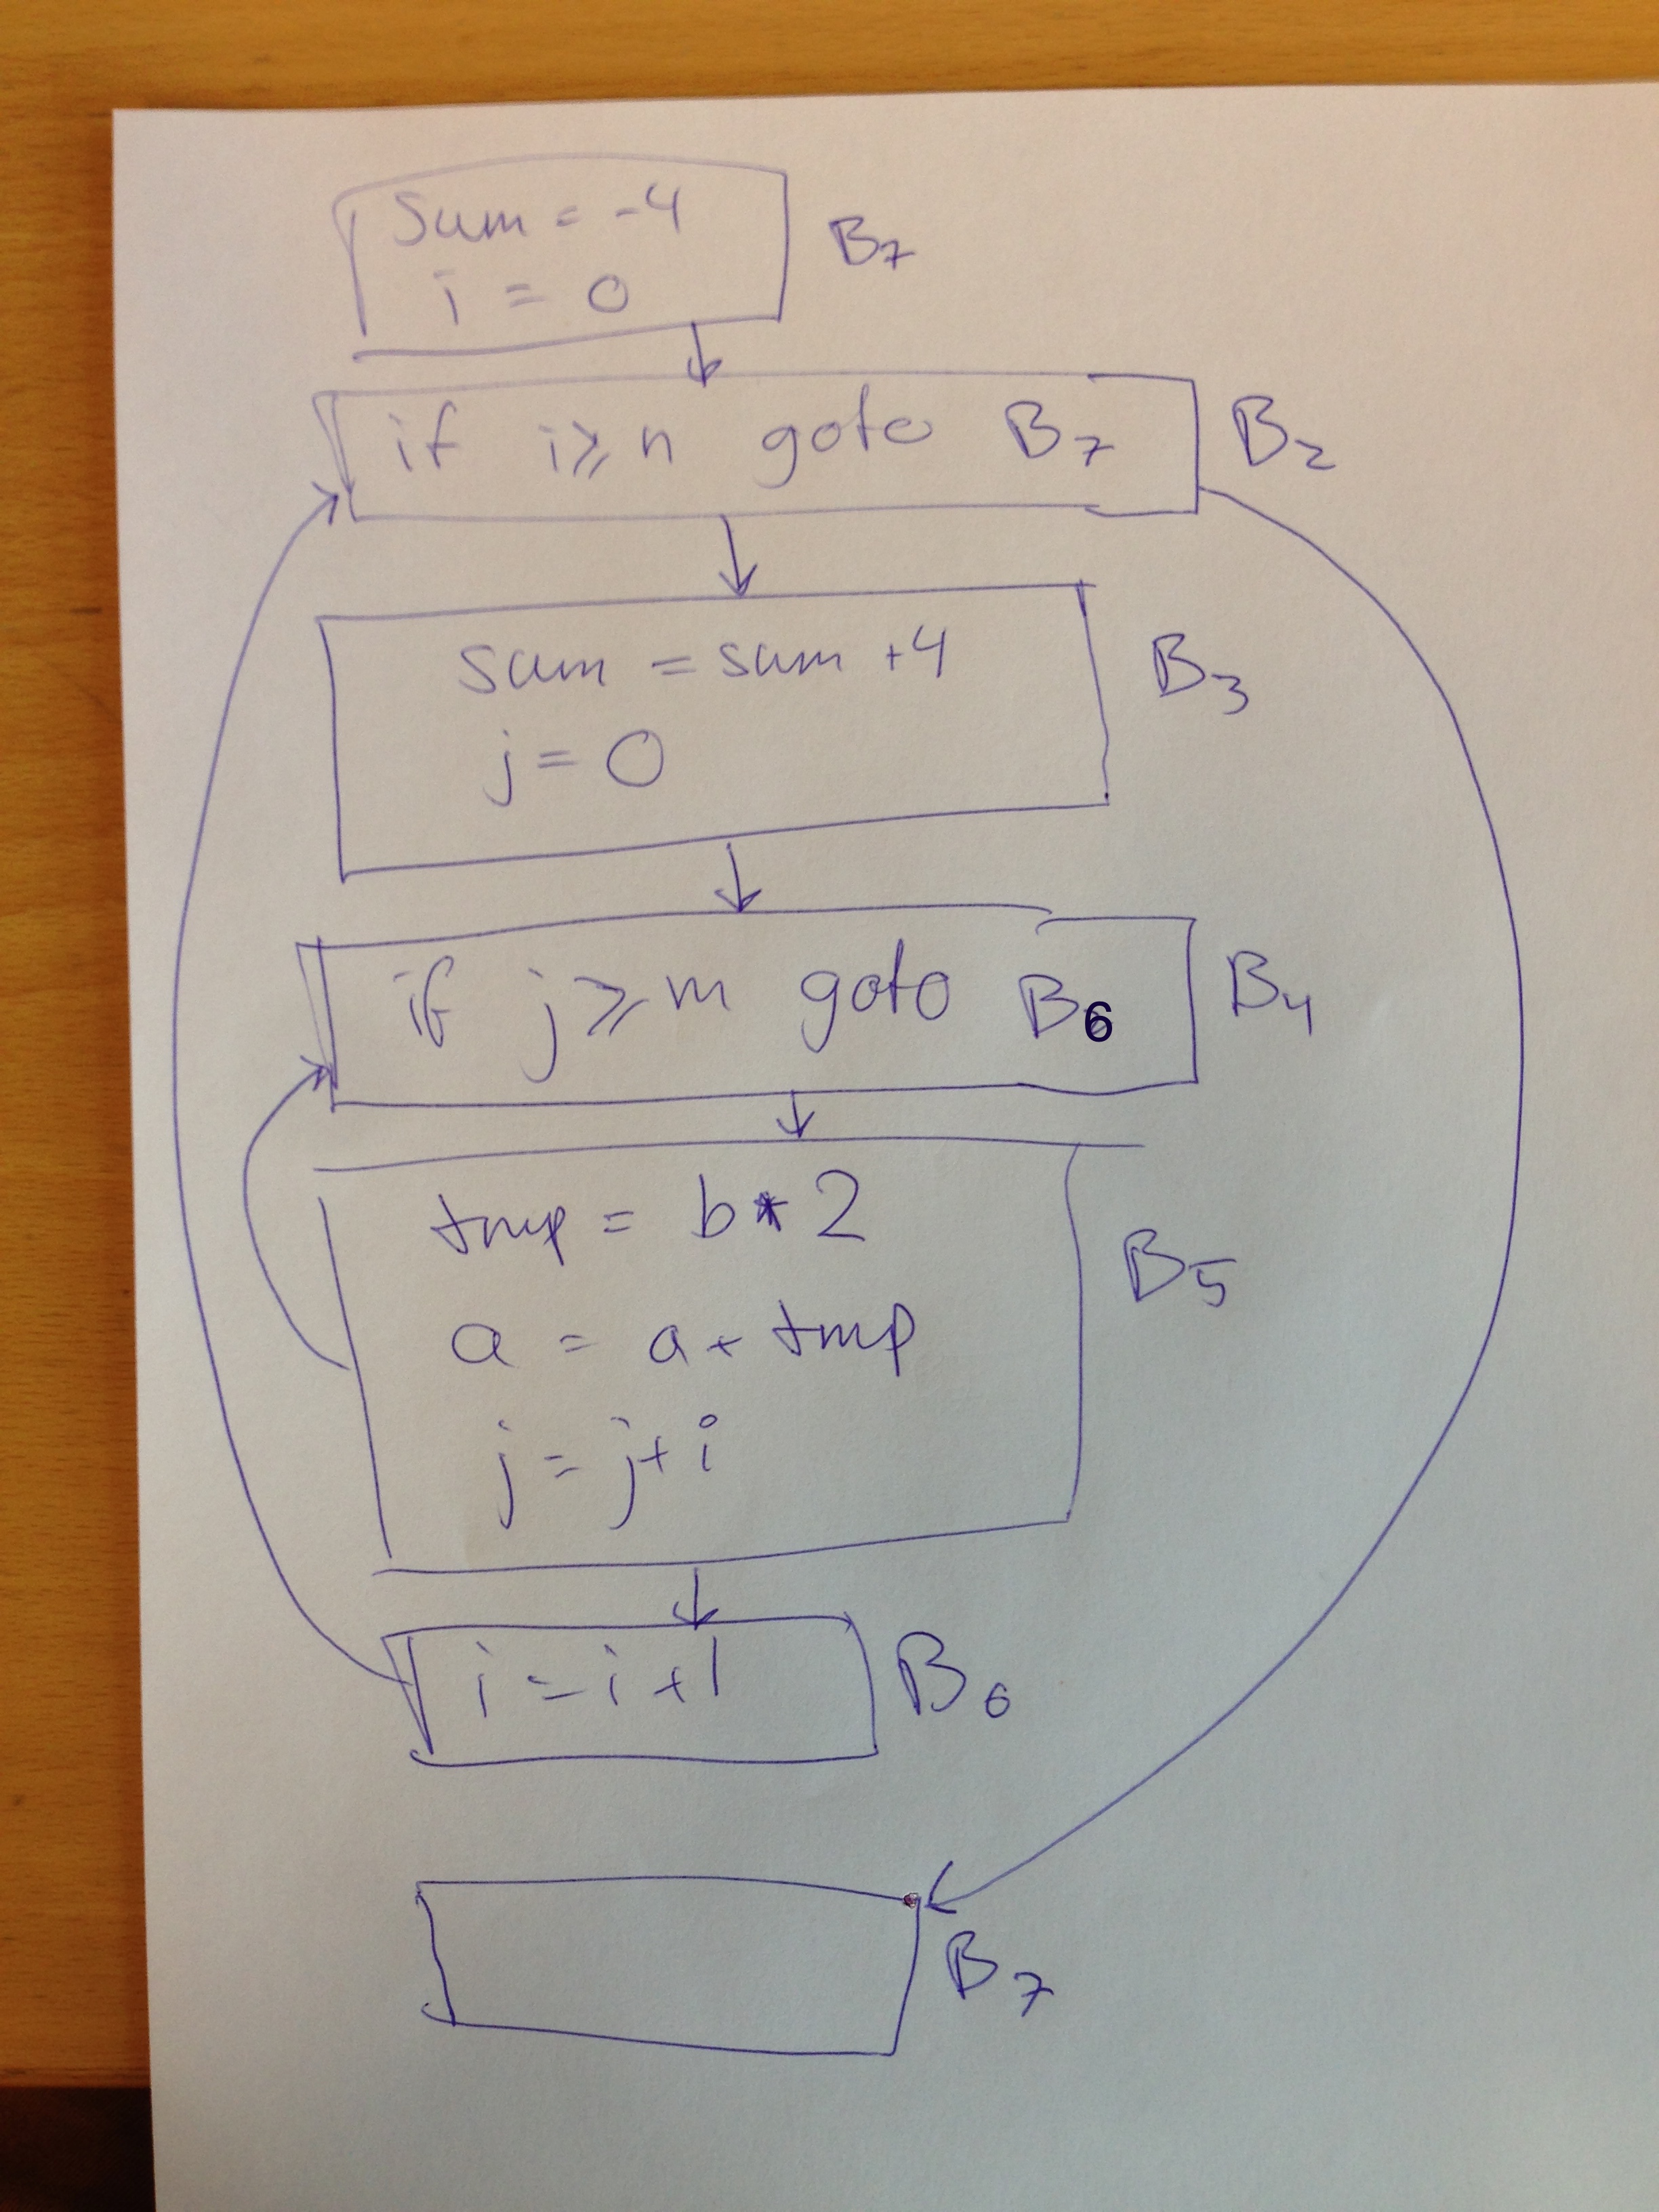 Sum = -4
i = 0
B7
if i ≥ n goto B7
B2
sum = sum + 4
j = 0
B3
if j ≥ m goto B6
B4
tmp = b * 2
a = a + tmp
j = j + i
B5
i = i + 1
B6
B7